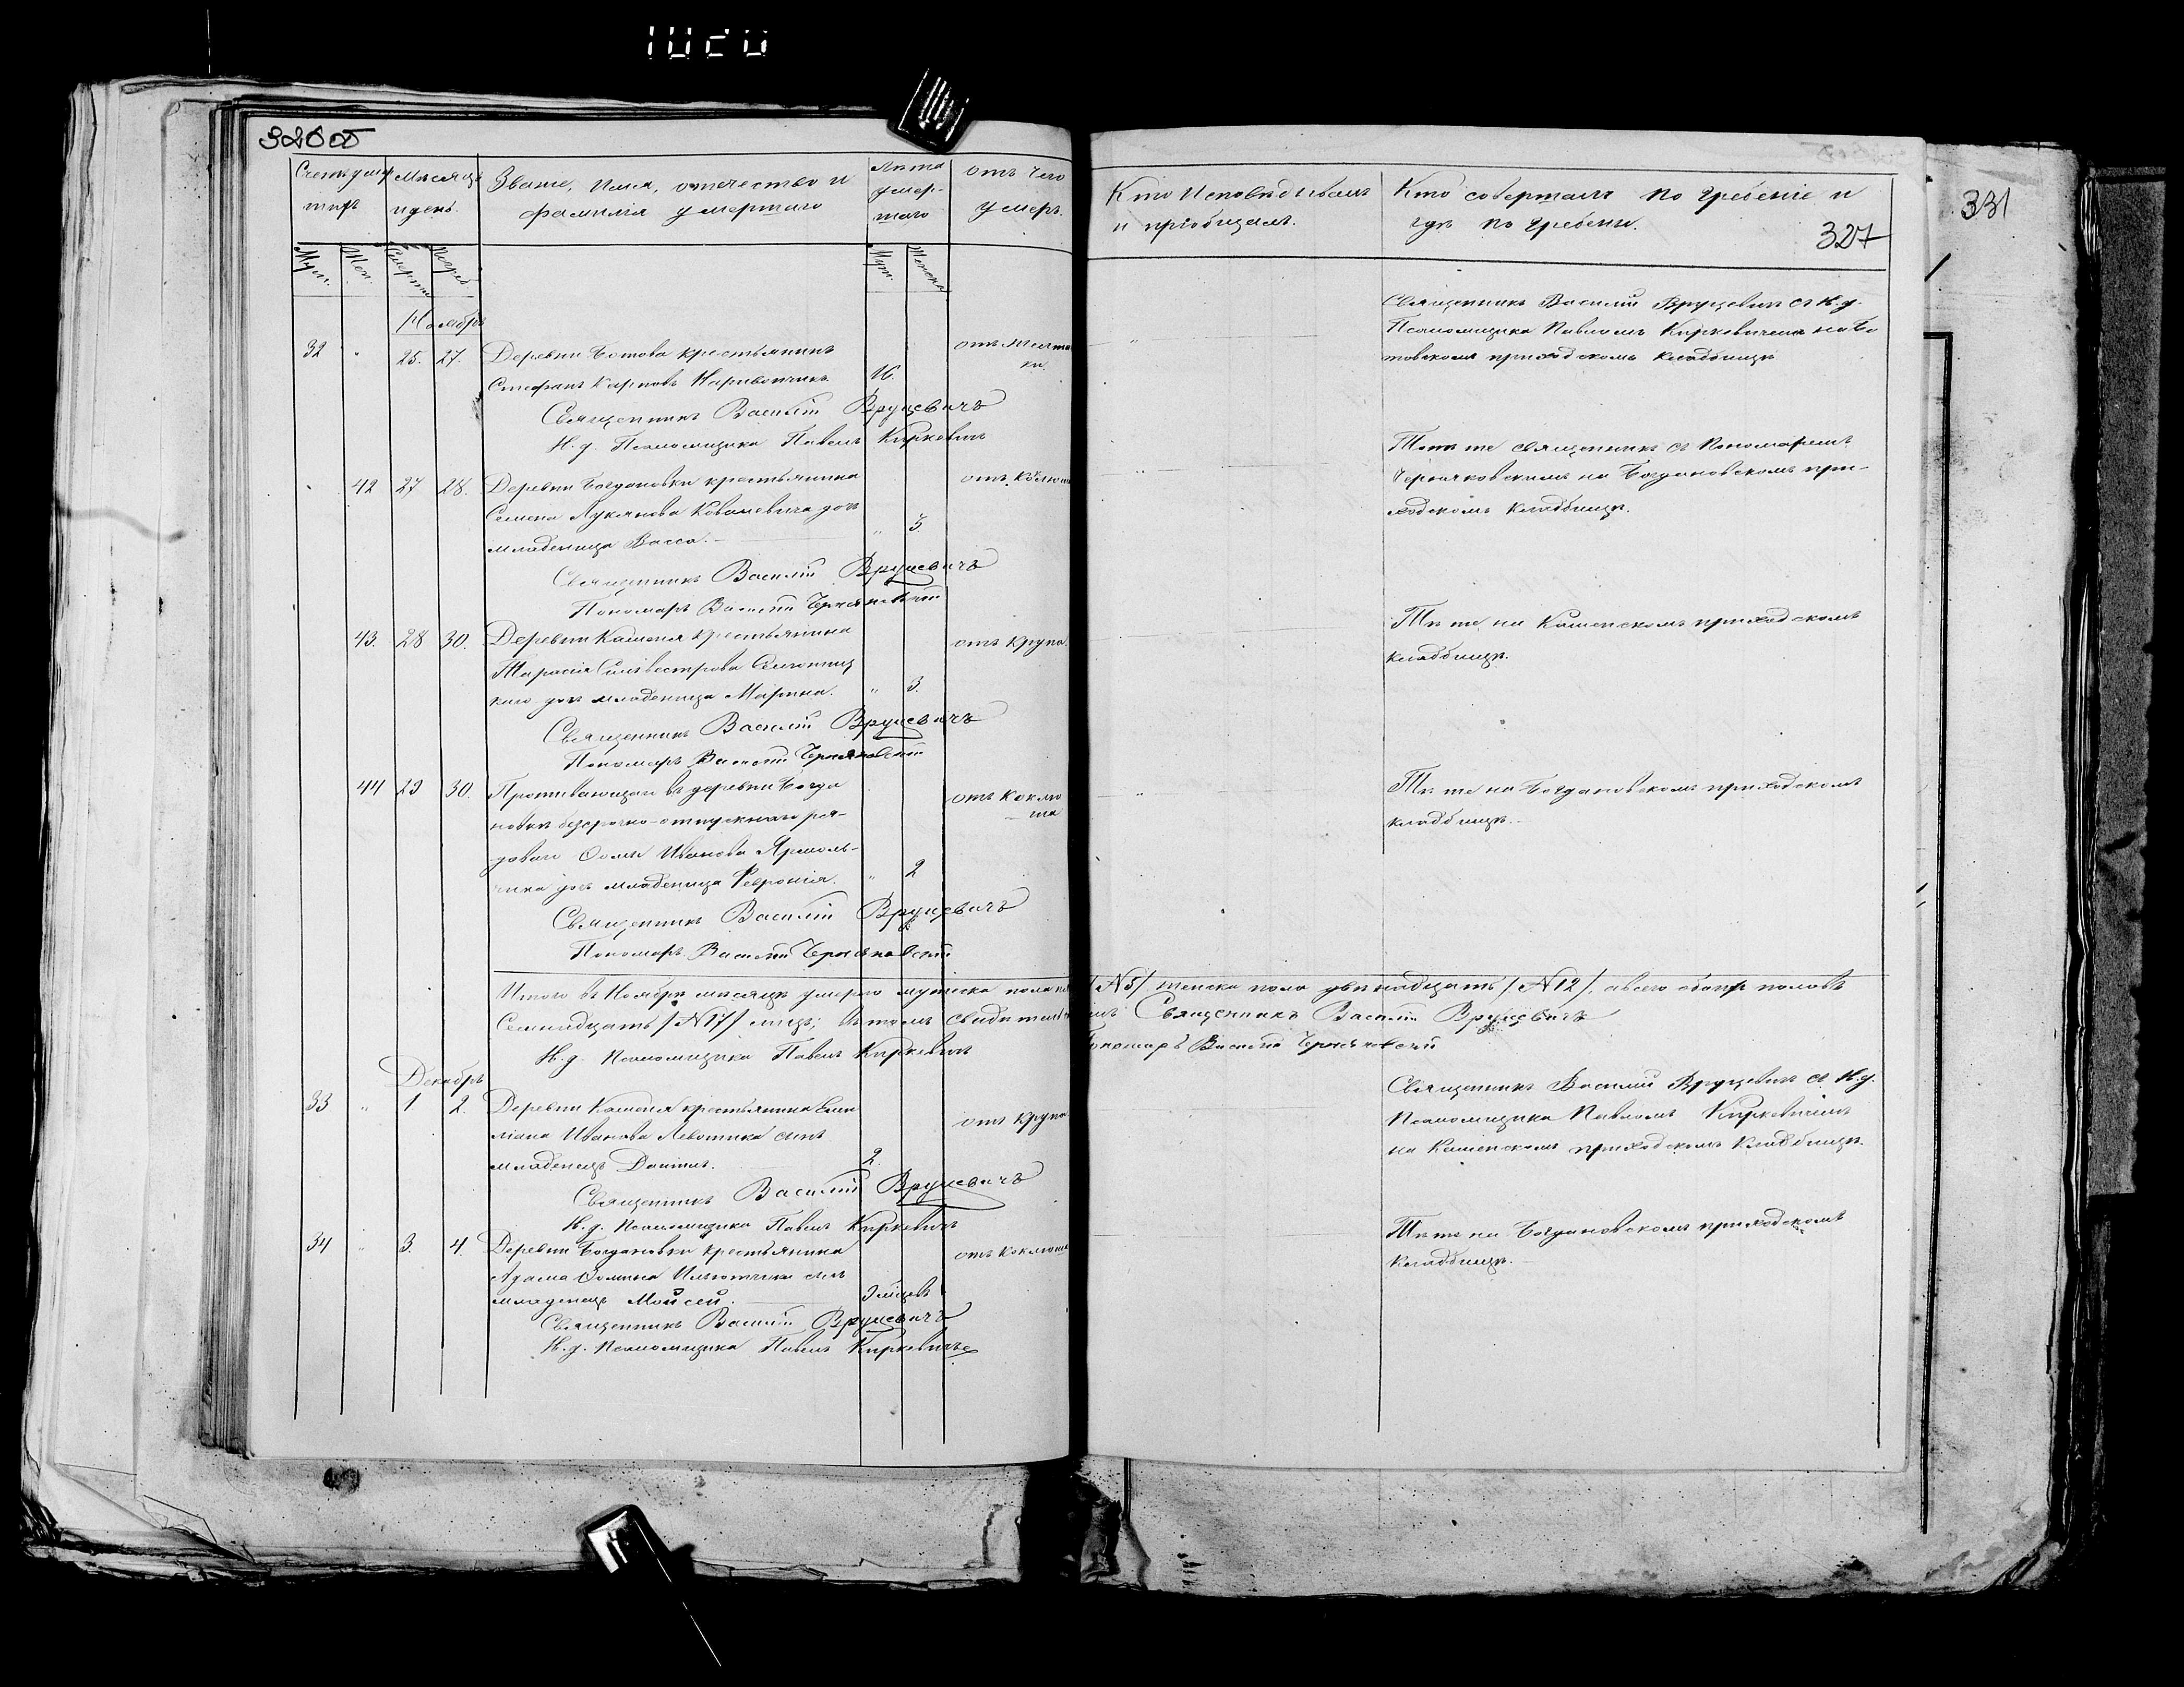 1020
326 об
331
327
Счетъ умер Мѣсяцъ Званіе, имя, отчество и Лѣта отъ чего
шихъ и день. фамилія умершаго умер- умеръ.
шаго
Кто Исповѣдывалъ Кто совершалъ погребеніе и
и пріобщалъ. гдѣ погребены.
Муж. Жен. Смерти Погреб. Муж. Женска
Ноябрь
32 " 25. 27. Деревни Ботова крестьянинъ
Стефанъ Карповъ 16.
Священникъ Василій Вруцевичъ
И. д. Псаломщика Павелъ Киркевичъ
Священникъ Василій Вруцевичъ съ И. д.
Псаломщика Павломъ Киркевичемъ на Бо
товскомъ приходскомъ кладбищѣ
42 27 28. Деревни Богдановки крестьянина отъ коклюша
Семена Лукянова Ковалевича дочь
младеница Васса. " 5
Священникъ Василій Вруцевичъ
Пономарь Василій Черняковскій
Тотъ же священникъ съ Пономаремъ
Черняковскимъ на Богдановскомъ при-
ходскомъ кладбищѣ.
43. 28 30. Деревни Каменя крестьянина отъ крупа.
Тарасія Силвестрова
каго дочь младеница Марина. " 3.
Священникъ Василій Вруцевичъ
Пономарь Василій Черняковскій
Тѣ же на Каменскомъ приходскомъ
кладбищѣ.
44 29 30. Проживающаго въ деревни Богда отъ коклю
новки безсрочно-отпускнаго ря- ша
доваго Ѳомы Иванова Ярмоль-
чика дочь младеница Февронія. " 2
Священникъ Василій Вруцевичъ
Пономарь Василій Черняковскій
Тѣ же на Богдановскомъ приходскомъ
кладбищѣ.
Итого въ Ноябрѣ мѣсяцѣ умерло мужеска пола /№ 5/ женска пола двѣнадцать /№ 12/, а всего обоего половъ
Семнадцать /№ 17/ лицъ; въ томъ свидѣтельствуемъ Священникъ Василій Вруцевичъ
И. д. Псаломщика Павелъ Киркевичъ Пономарь Василій Черняковскій
Декабрь
33 " 1 2. Деревни Каменя крестьянина Еми отъ крупа
ліана Иванова сынъ
младенецъ Даніилъ. 2.
Священникъ Василій Вруцевичъ
И. д. Псаломщика Павелъ Киркевичъ
Священникъ Василій Вруцевичъ съ И. д.
Псаломщика Павломъ Киркевичемъ
на Каменскомъ приходскомъ кладбищѣ.
34 " 3. 4. Деревни Богдановки крестьянина отъ коклюша
Адама Ѳомина сынъ
младенецъ Мойсей.
Священникъ Василій Вруцевичъ
И. д. Псаломщика Павелъ Киркевичъ
Тѣ же на Богдановскомъ приходскомъ
кладбищѣ.